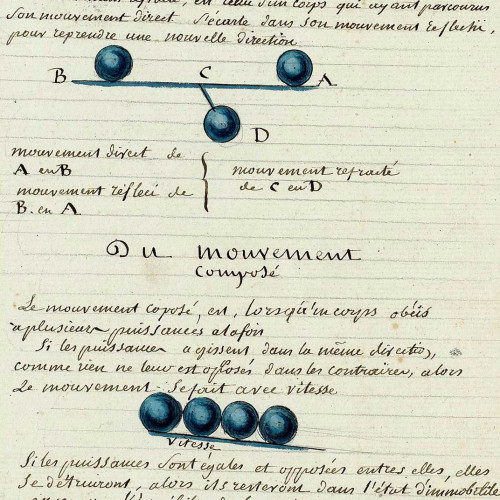 est celui d'un corps qui ayant parcourus
son mouvement direct s'écarte dans son mouvement reflechi,
pour reprendre une nouvelle direction
B C A
D
mouvement direct de
A en B
mouvement réfleci de
B. en A
mouvement refracté
de C en D
Du mouvement
composé
Le mouvement coposé, est, lorsqu'un corps obéis
a plusieur puissances alafois
Si les puissances agissent dans la même directio,
comme rien ne leur est oposés dans les contraires, alors
Le mouvement se fait avec vitesse
Vitesse
Si les puissances sont égales et opposées entres elles, elles
se détruiront, alors ils resteront dans l'état d'immobilité